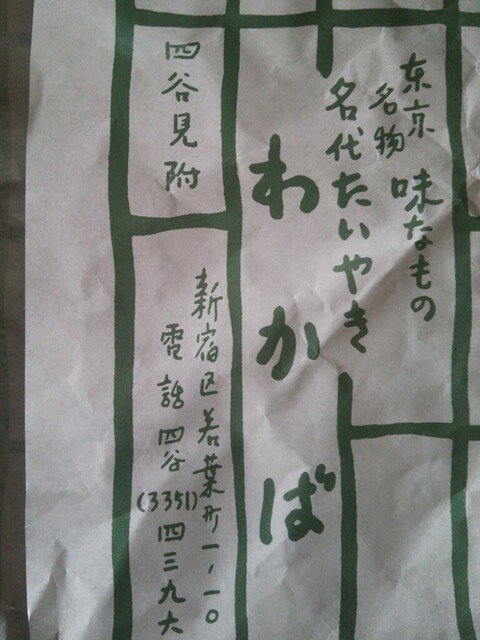 东京
名物
味なもの
名代たいやき
わかば
四谷見附
新宿区若葉町一ノ一〇
電話四谷
(3351)四三九六